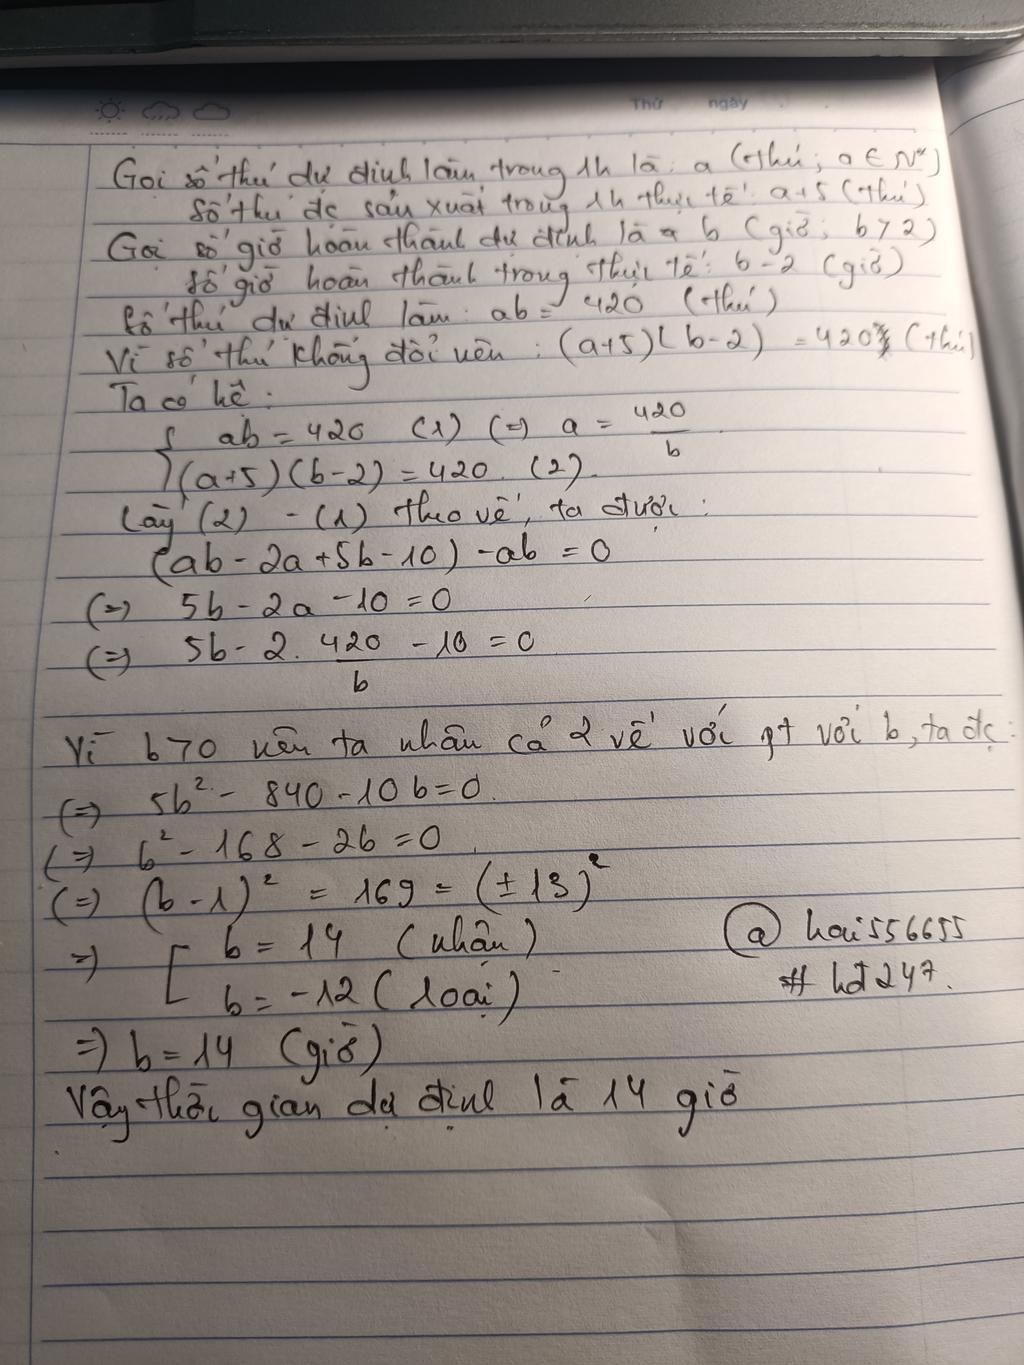 Thứ ngày
Gọi số thú dự định làm trong 1h là: a (thú; a ∈ N*)
Số thú đc sản xuất trong 1h thực tế: a+5 (thú)
Gọi số giờ hoàn thành dự định là b (giờ; b > 2)
Số giờ hoàn thành trong thực tế: b-2 (giờ)
Số thú dự định làm: ab = 420 (thú)
Vì số thú không đổi nên: (a+5)(b-2) = 420 (thú)
Ta có hệ:
{ ab = 420 (1) (=) a = 420/b
(a+5)(b-2) = 420. (2).
Lấy (2) - (1) theo vế, ta được:
(ab - 2a + 5b - 10) - ab = 0
(=) 5b - 2a - 10 = 0
(=) 5b - 2. 420/b - 10 = 0
Vì b > 0 nên ta nhân cả 2 vế với gt với b, ta đc:
(=) 5b² - 840 - 10b = 0.
(=) b² - 168 - 2b = 0
(=) (b-1)² = 169 = (±13)²
=) [ b = 14 (nhận)
b = -12 (loại)
@hai556655
#hđ247.
=) b = 14 (giờ)
Vậy thời gian dự định là 14 giờ